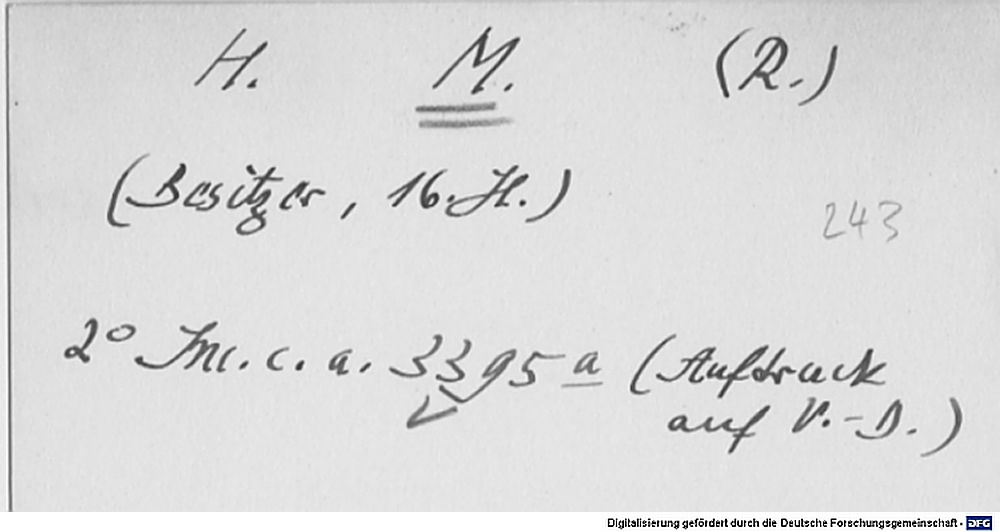 H. M. (R.)
(Besitzer, 16. H.)
243
2° Inc. c. a. 3395 a (Aufdruck
auf V.-D.)
Digitalisierung gefördert durch die Deutsche Forschungsgemeinschaft - DFG